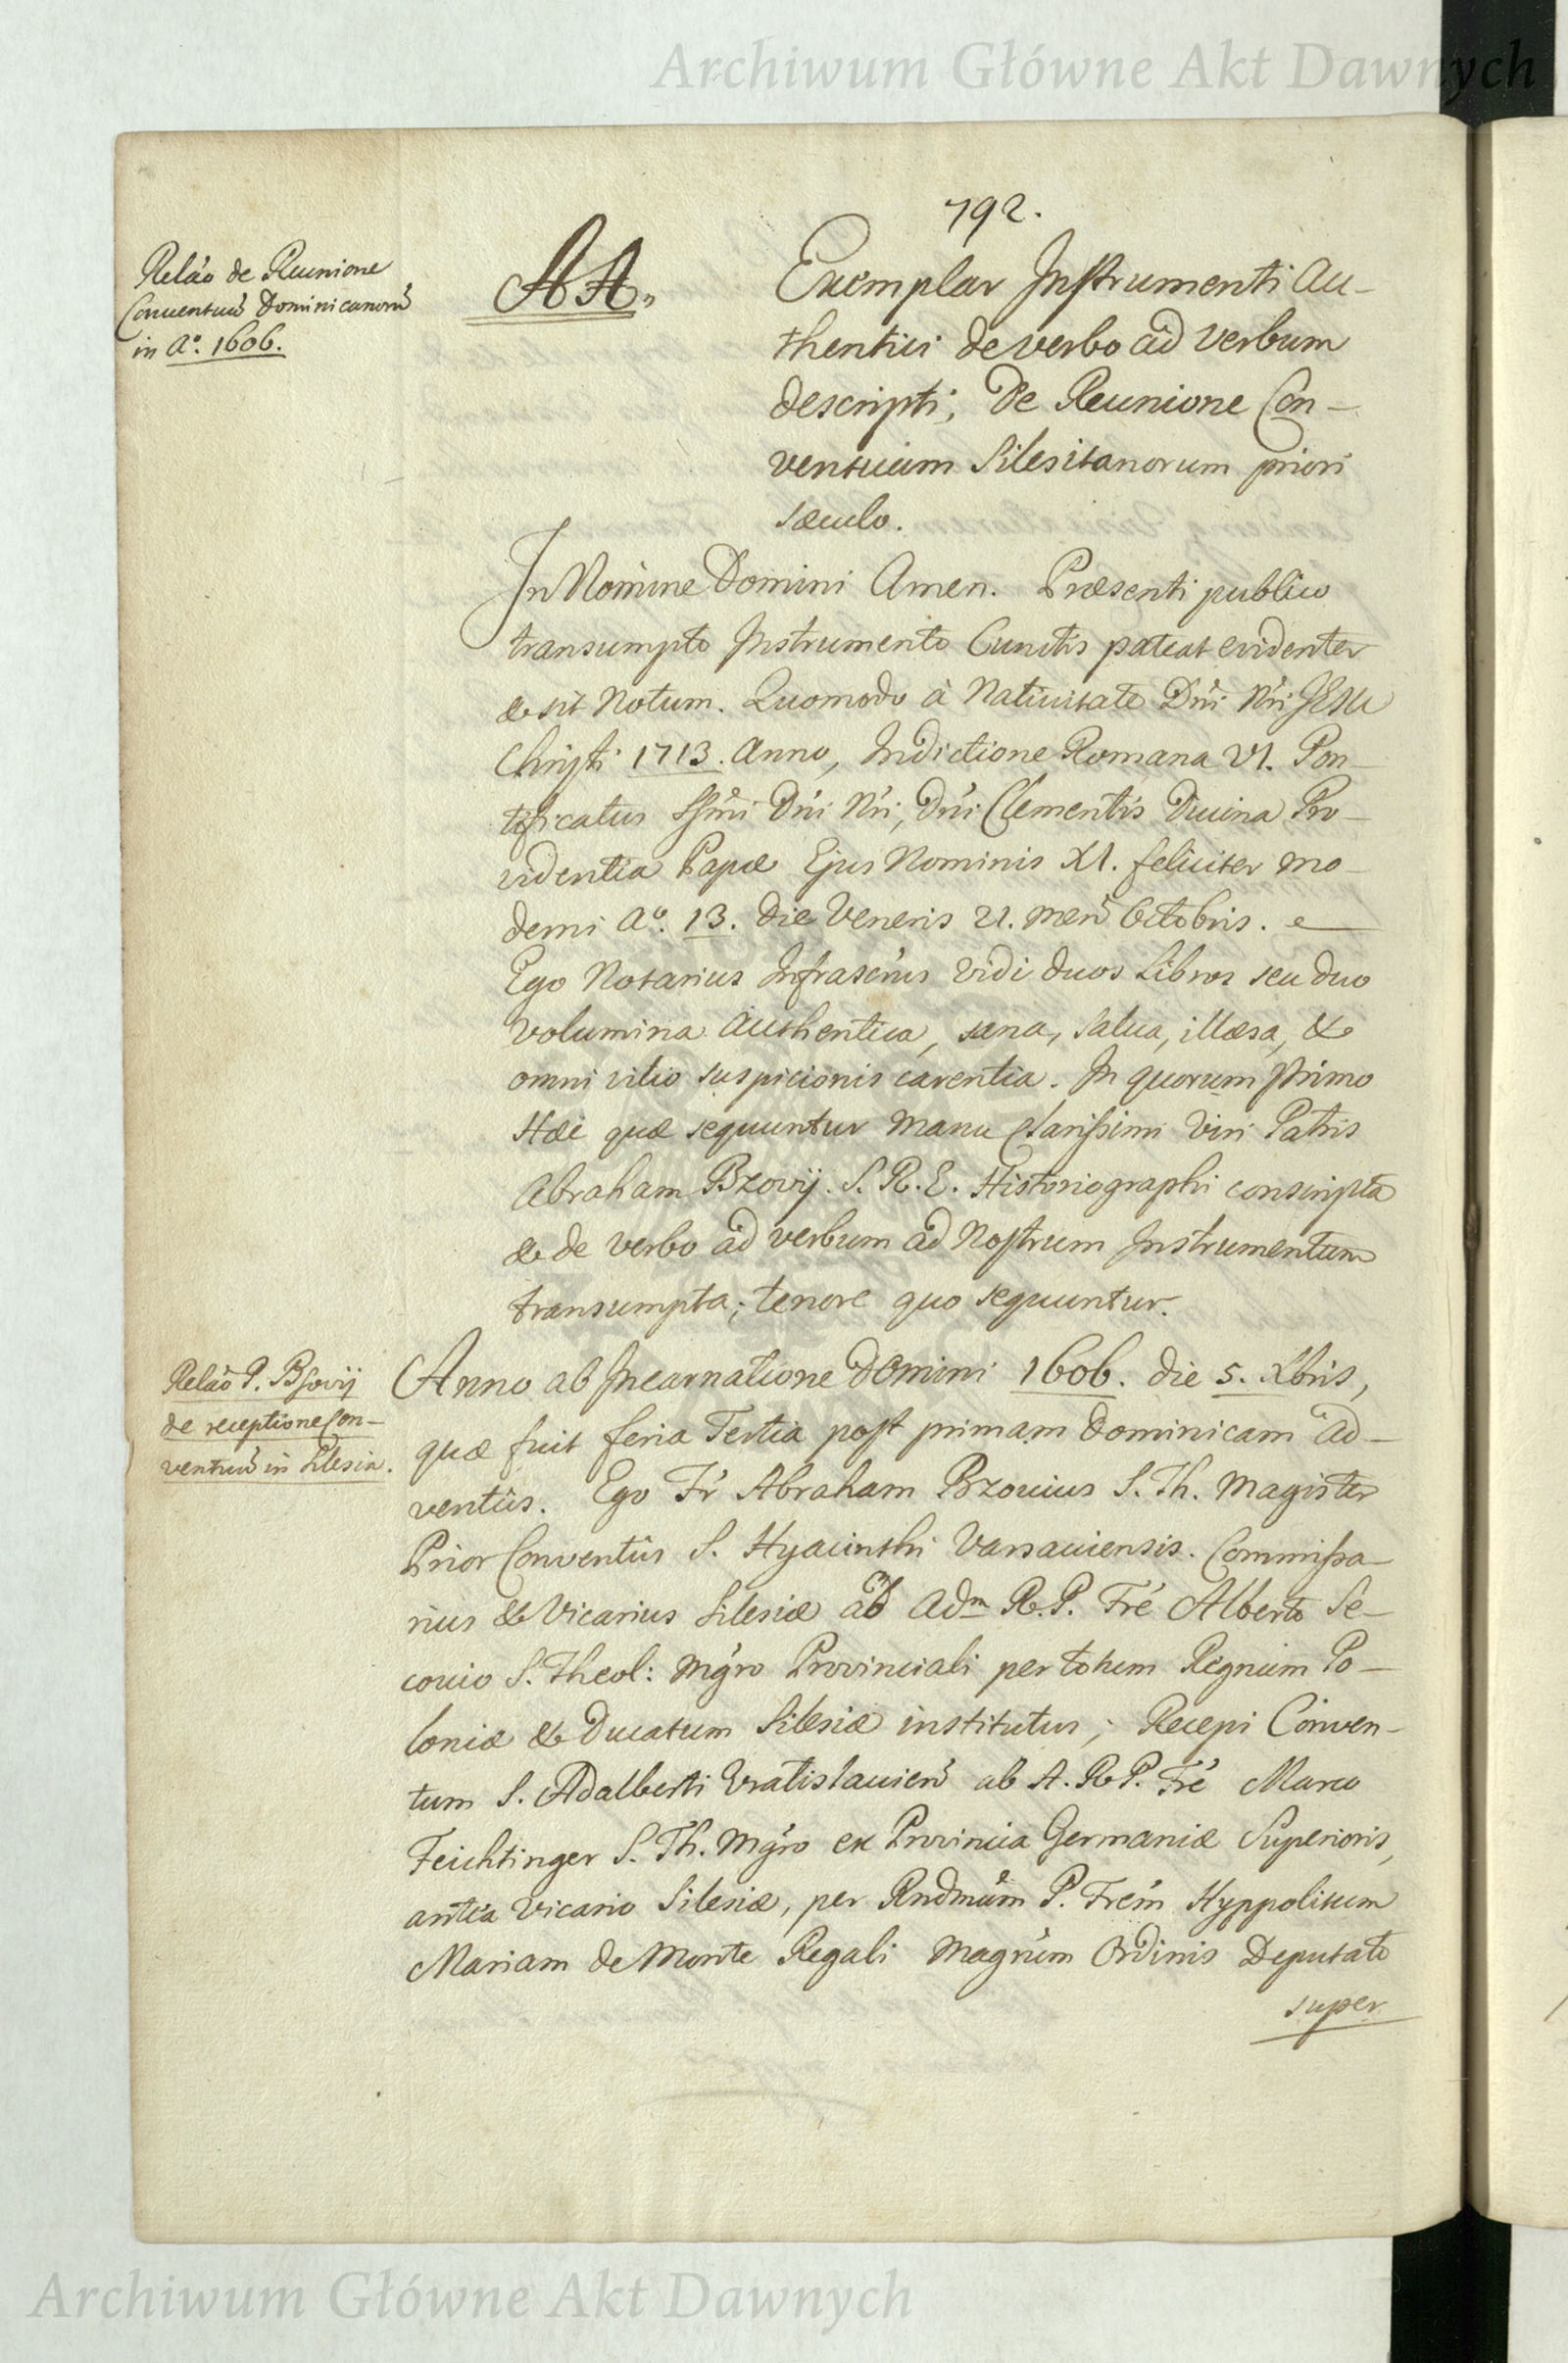 Archiwum Główne Akt Dawnych
792.
Relão de Reunione
Conventuũ Dominicanorũ
in Aº. 1606.
AA.
Exemplar Instrumenti Au-
thentici de verbo ad verbum
descripti, De Reunione Con-
ventuum Silesitanorum priori
sæculo.
In Nomine Domini Amen. Præsenti publico
transumpto Instrumento Cunctis pateat evidenter
& sit Notum. Quomodo à Nativitate Dñi Nri JESU
Christi 1713. Anno, Indictione Romana VI. Pon-
tificatus Ssmi Dñi Nri, Dñi Clementis Divina Pro-
videntia Papæ Ejus Nominis XI. feliciter mo-
derni Aº. 13. Die Veneris 21. men̄ Octobris.
Ego Notarius Infrascrus vidi duos Libros seu duo
volumina Authentica, sana, salva, illæsa, &
omni vitio suspicionis carentia. In quorum primo
Hæc quæ sequuntur manu Clarissimi Viri Patris
Abraham Bzovij. S. R. E. Historiographi conscripta
& de verbo ad verbum ad Nostrum Instrumentum
transumpta; tenore quo sequuntur.
Relão P. Bzovij
de receptione Con-
ventuũ in Silesia.
Anno ab Incarnatione Domini 1606. die 5. Xbris,
quæ fuit feria Tertia post primam Dominicam Ad-
ventûs. Ego Fr Abraham Bzovius S. Th. Magister
Prior Conventûs S. Hyacinthi Varsaviensis. Commissa-
rius & Vicarius Silesiæ ab Adm R. P. Fre Alberto Se-
covio S. Theol: Mgro Provinciali per totum Regnum Po-
loniæ & Ducatum Silesiæ institutus; Recepi Conven-
tum S. Adalberti Vratislavien̄ ab A. R. P. Fre Marco
Feichtinger S. Th. Mgro ex Provincia Germaniæ Superioris,
antea Vicario Silesiæ, per Rndmum P. Frem Hyppolitum
Mariam de Monte Regali Magrum Ordinis Deputato
super
Archiwum Główne Akt Dawnych